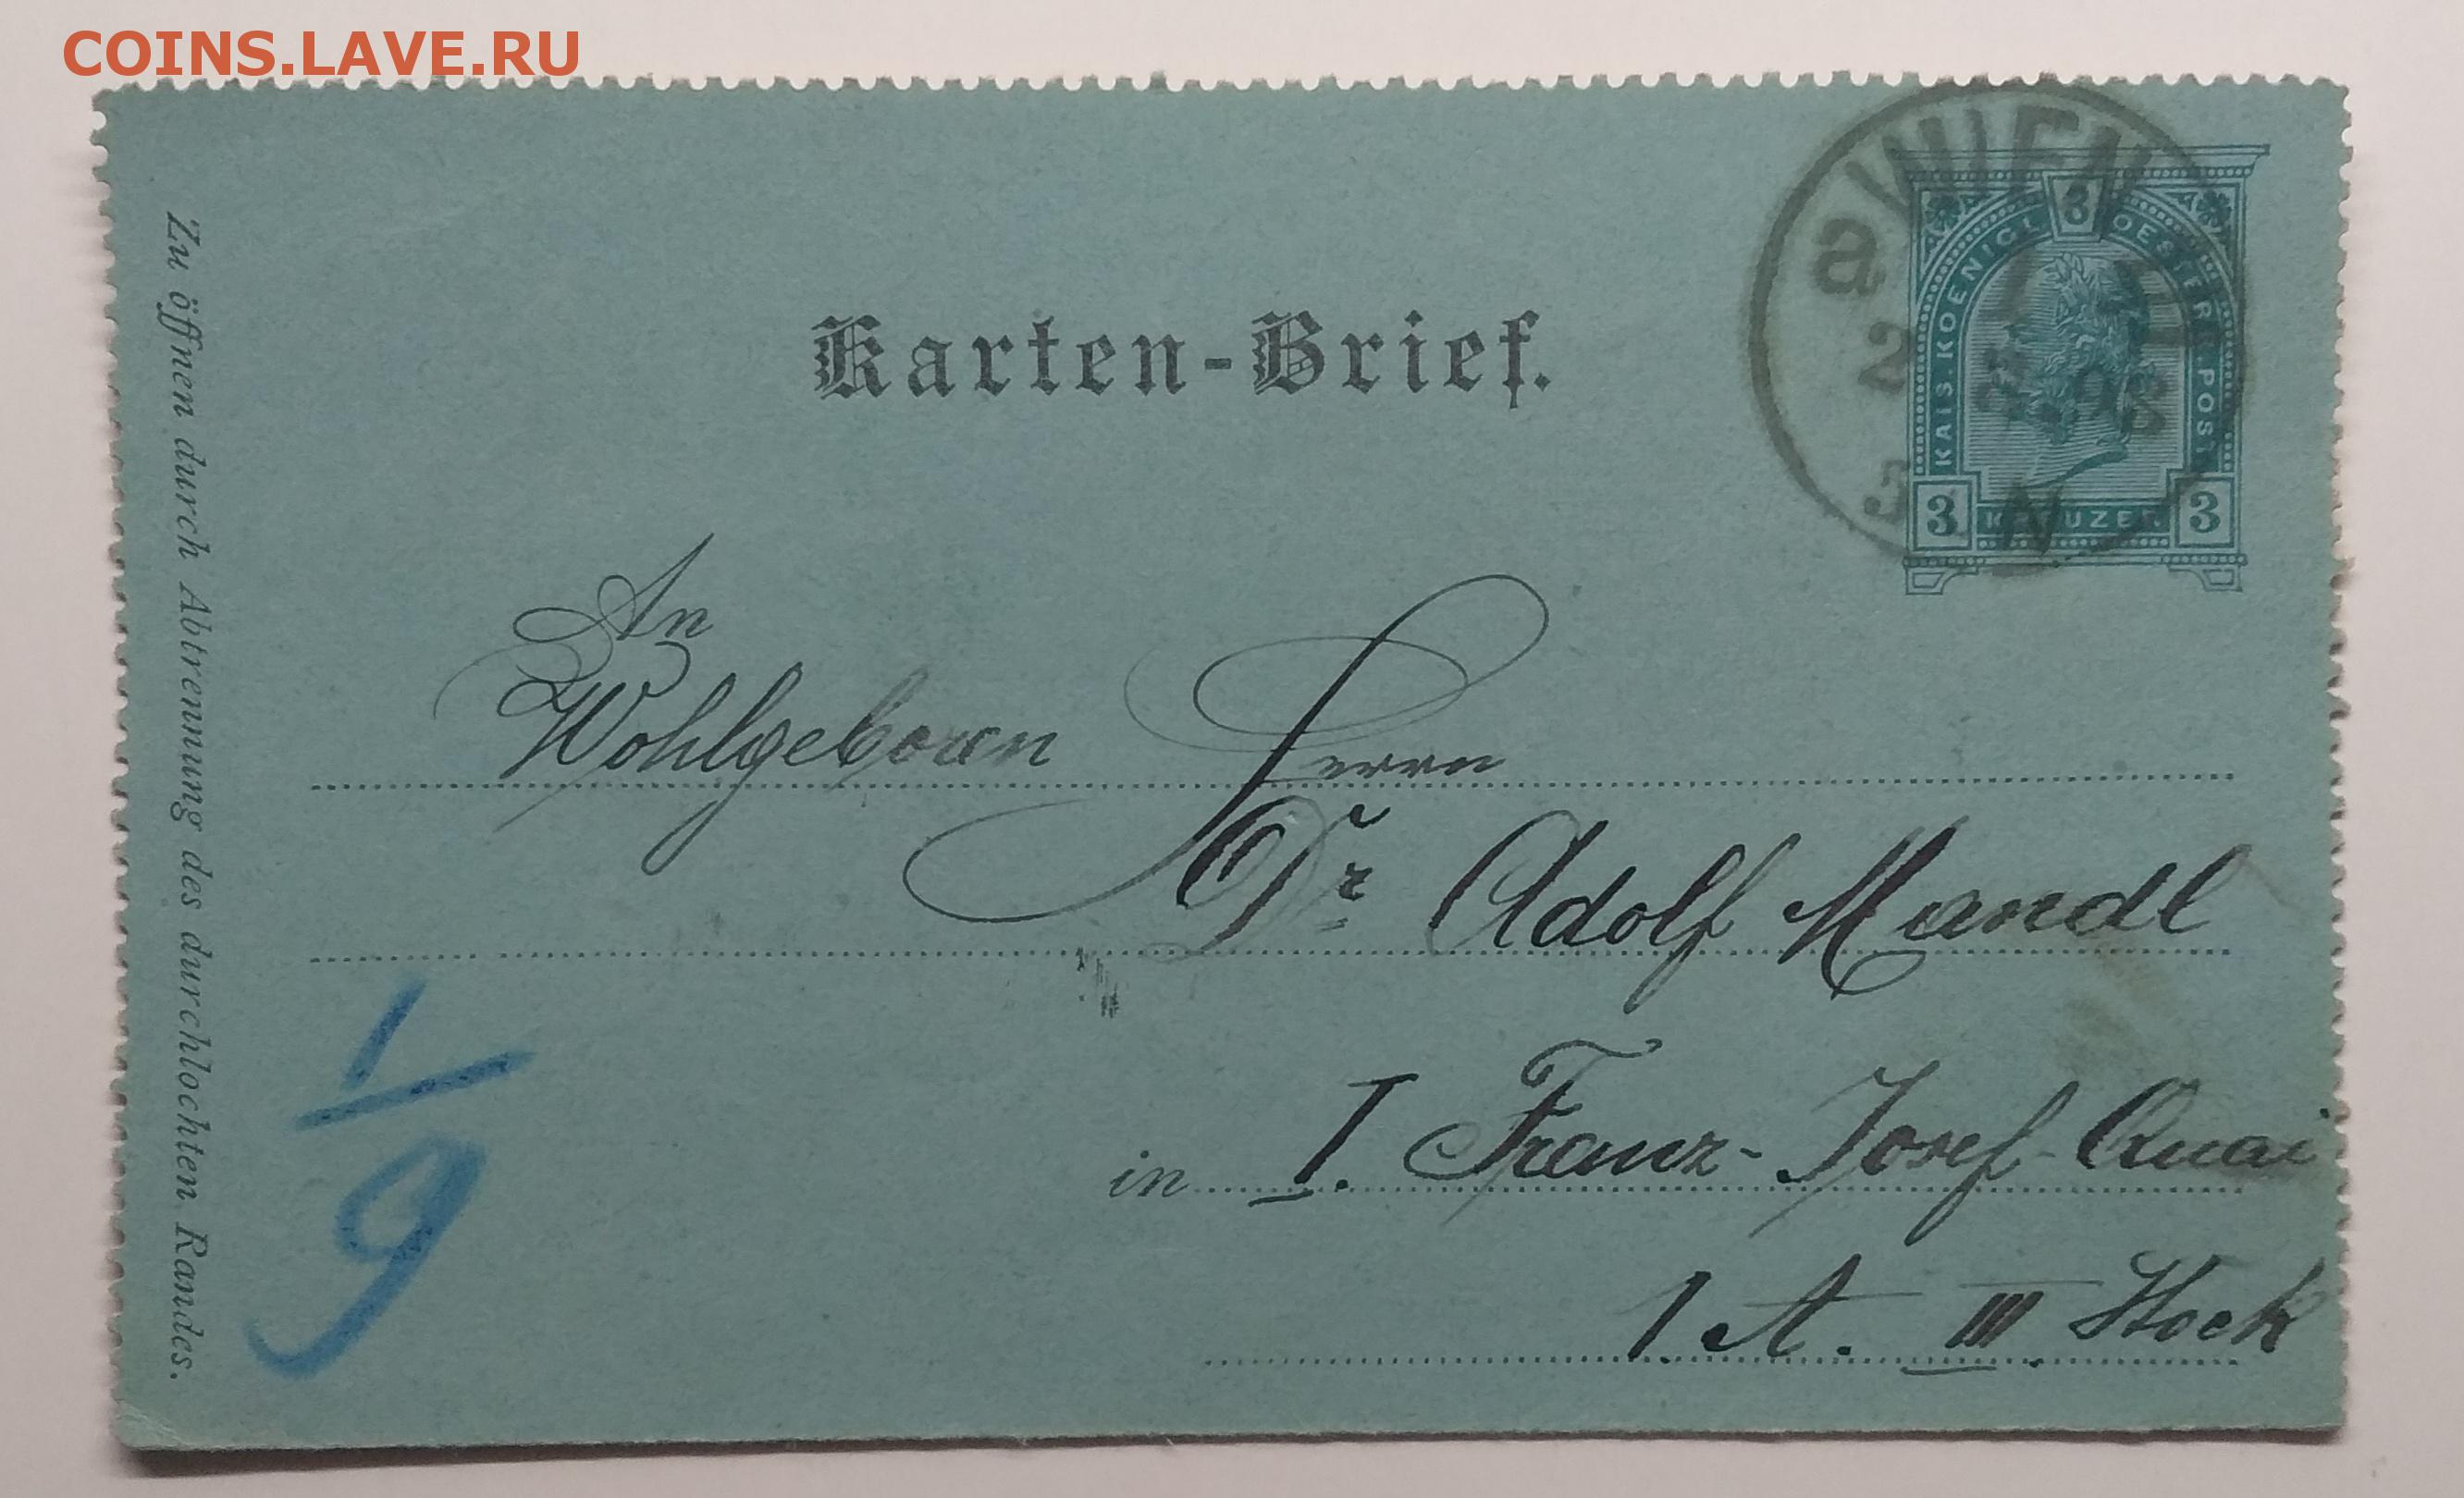 COINS.LAVE.RU
a WIEN
2
5 N
3
KAIS. KOENIGL. OESTERR. POST
3 KREUZER 3
Karten-Brief.
Zu öffnen durch Abtrennung des durchlochten Randes.
An
Wohlgeboren Herrn
Dr. Adolf Mandl
in I. Franz-Josef-Quai
1 A. III. Stock
1/9